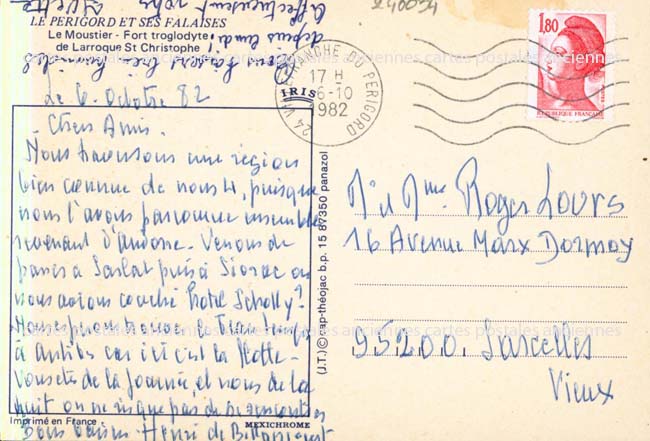 LE PERIGORD ET SES FALAISES
Le Moustier - Fort troglodyte
de Larroque St Christophe
240094
Le 6 Octobre 82
IRIS
Chers Amis.
Nous traversons une région
bien connue de nous 4, puisque
nous l'avons parcourue ensemble
revenant d'andorre. Venons de
passer à Sarlat puis à Siorac où
nous avions couché hotel Scholly?
à Antibes car ici c'est la flotte
Vous êtes de la Journée, et nous de la
nuit on ne risque pas de se rencontrer
Bons baisers - Henri de
Imprimé en France
MEXICHROME
depuis lundi!
affectueusement
24 VILLEFRANCHE DU PERIGORD
17 H
6-10
1982
1,80
REPUBLIQUE FRANÇAISE
(J.T.) © cap-théojac b.p. 15 87350 panazol
Mr et Mme Roger Lours
16 Avenue Marx Dormoy
95200. Sarcelles
Vieux
cartes postales anciennes